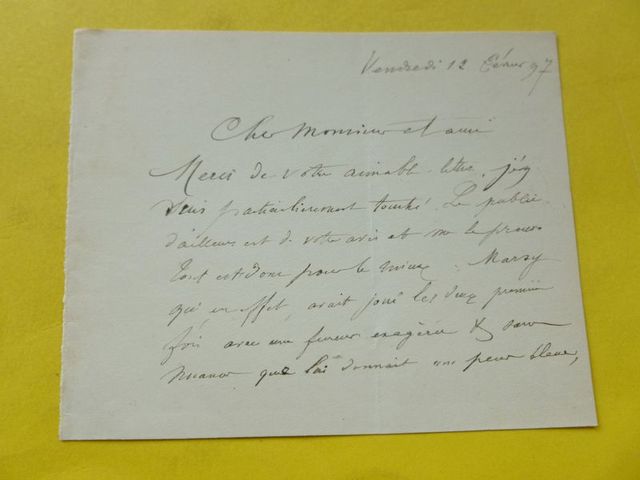 Vendredi 12 février 97
Cher Monsieur et ami
Merci de votre aimable lettre, j'en
suis particulièrement touché. Le public
d'ailleurs est de votre avis et me le prouve
tout est donc pour le mieux. Marsy
qui en effet, avait joué les deux premières
fois avec une fureur exagérée & sans
nuance que lui donnait une peur bleue,